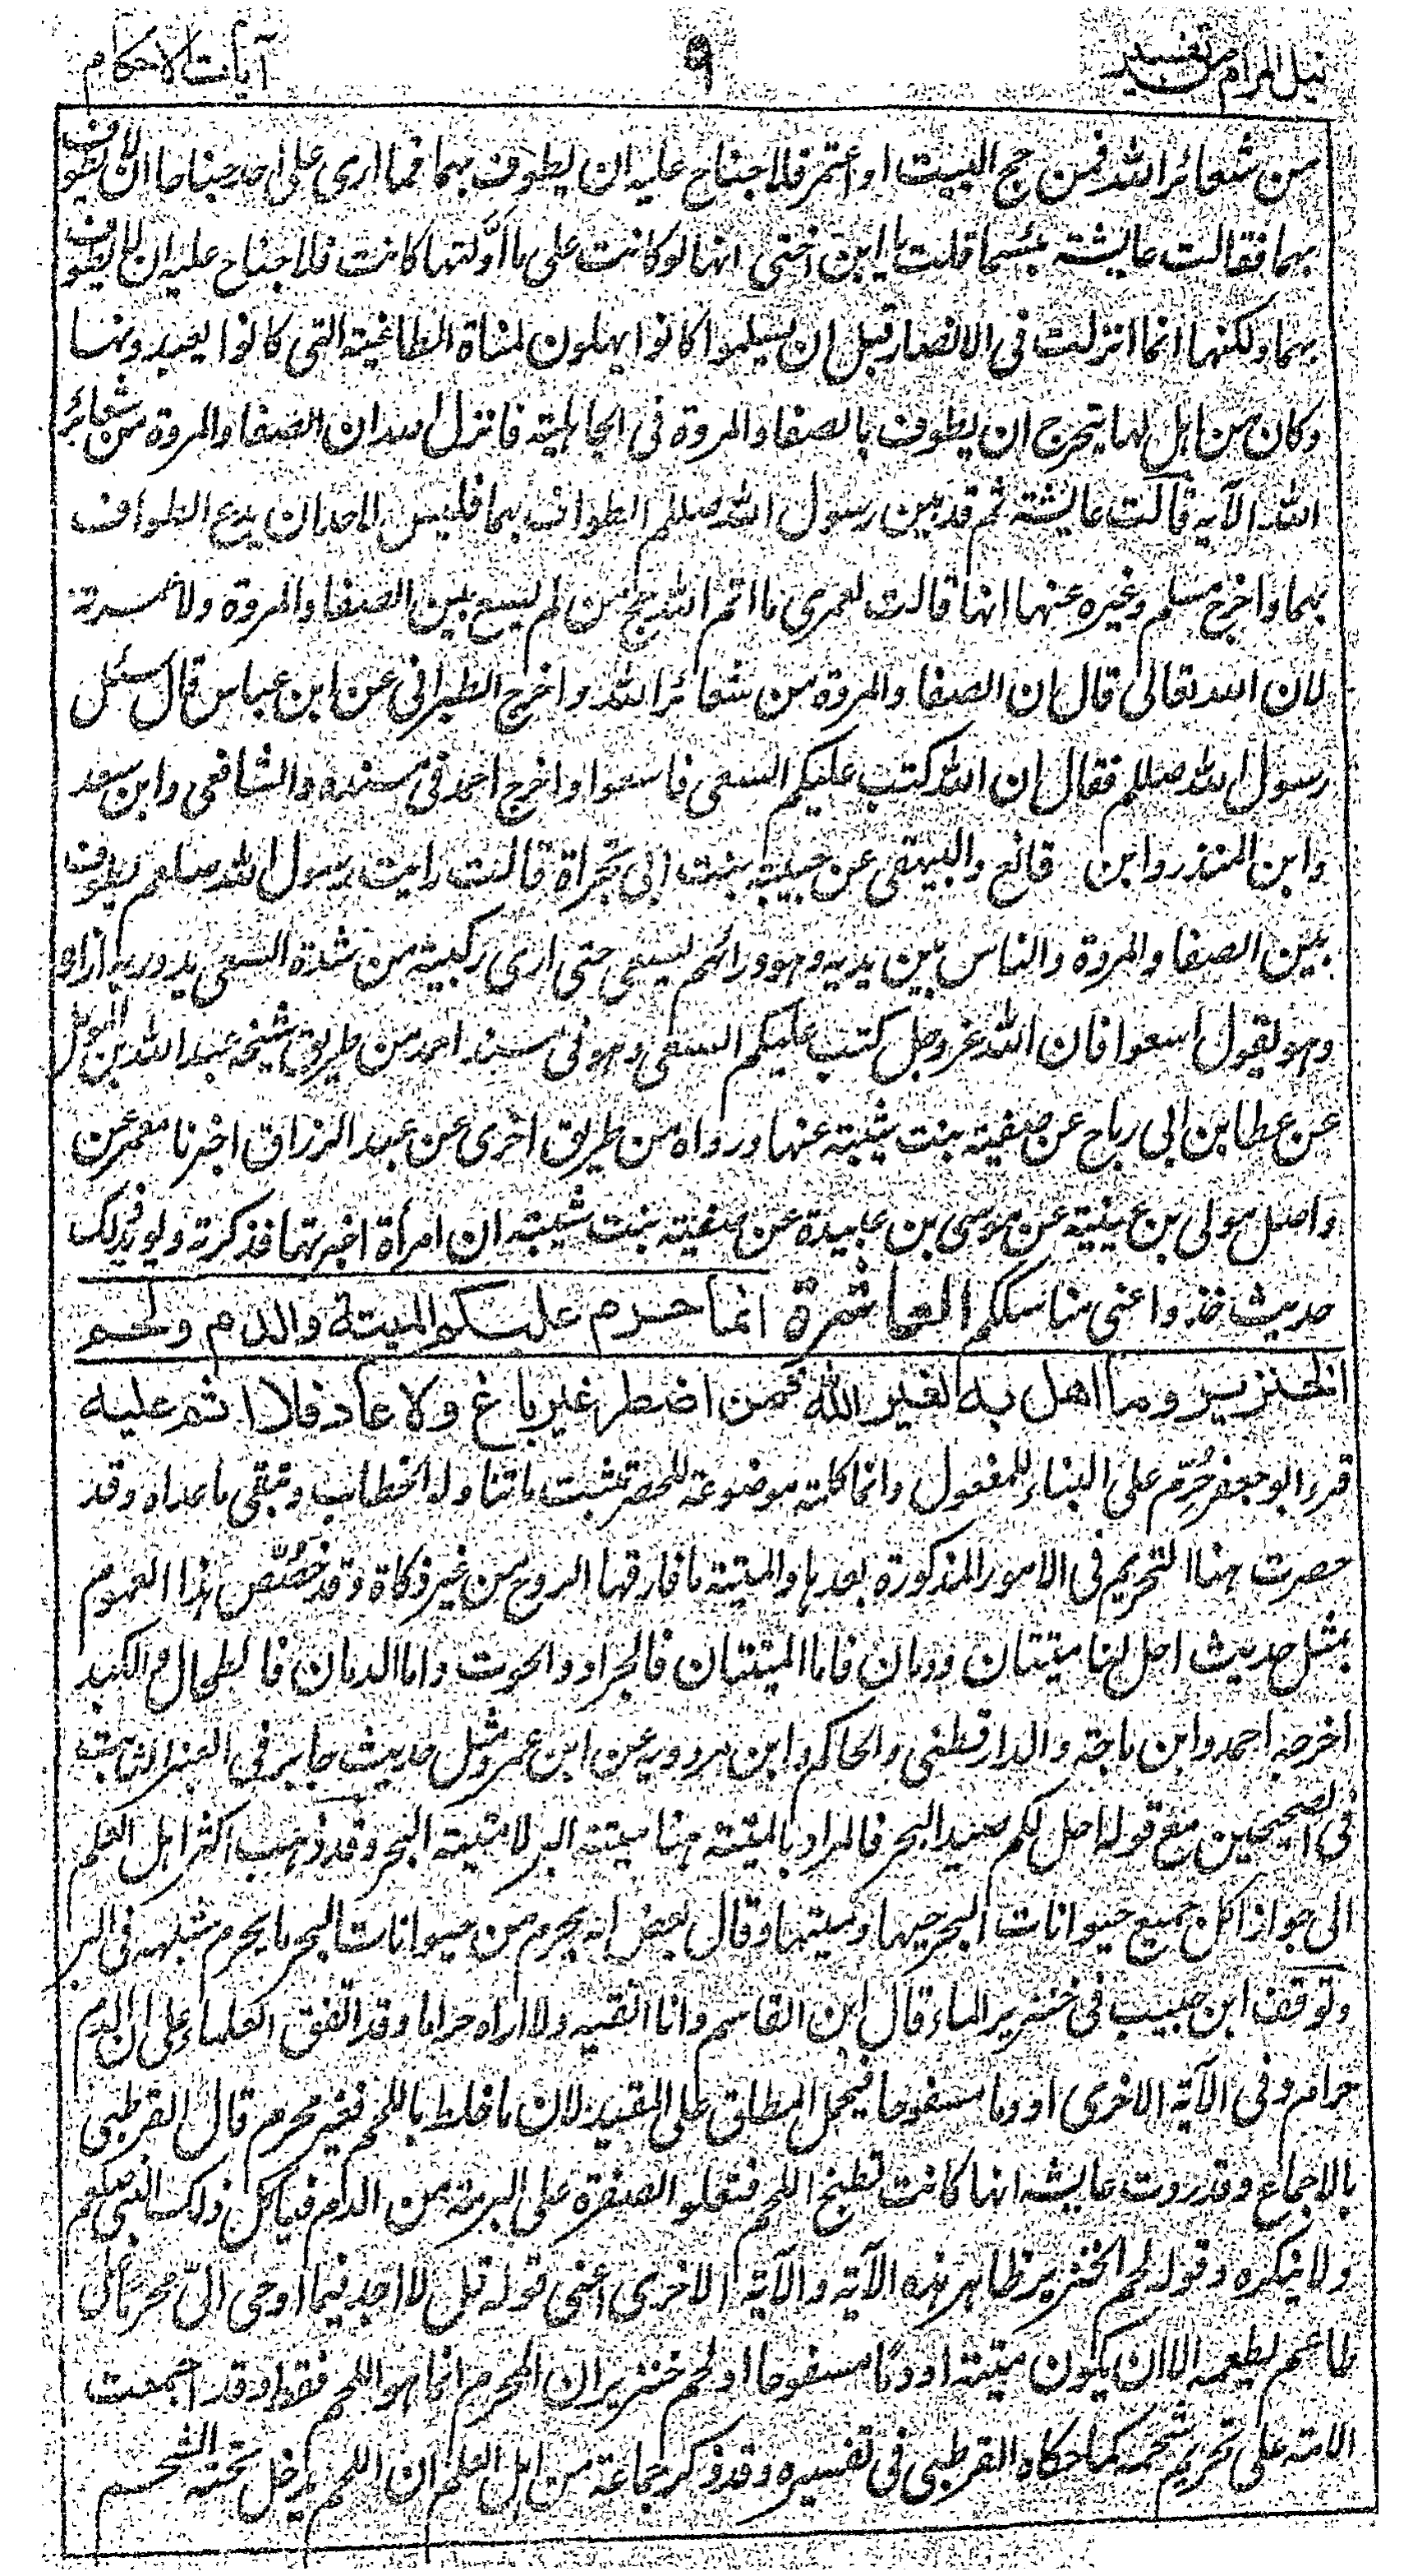 نيل المرام من تفسير
٩
آيات الاحكام
من شعائر الله فمن حج البيت او اعتمر فلا جناح عليه ان يطوف بهما فما ارى على احد جناحا ان لا يطوف
بهما فقالت عايشة بئسما قلت يا ابن اختى انها لو كانت على ما اوّلتها كانت فلا جناح عليه ان لا يطوف
بهما ولكنها انما انزلت فى الانصار قبل ان يسلموا كانوا يهلون لمناة الطاغية التى كانوا يعبدونها
وكان من اهل لها يتحرج ان يطوف بالصفا والمروة فى الجاهلية فانزل الله ان الصفا والمروة من شعائر
الله الآية قالت عايشة ثم قد بين رسول الله صلعم الطواف بهما فليس لاحد ان يدع الطواف
بهما واخرج مسلم وغيره عنها انها قالت لعمرى ما اتم الله حج من لم يسع بين الصفا والمروة ولا عمرته
لان الله تعالى قال ان الصفا والمروة من شعائر الله واخرج الطبرانى عن ابن عباس قال سئل
رسول الله صلعم فقال ان الله كتب عليكم السعى فاسعوا واخرج احمد فى مسنده والشافعى وابن سعد
وابن المنذر وابن قانع والبيهقى عن حبيبة بنت ابى تجراة قالت رايت رسول الله صلعم يطوف
بين الصفا والمروة والناس بين يديه وهو ورائهم يسعى حتى ارى ركبتيه من شدة السعى يدور به ازاره
وهو يقول اسعوا فان الله عز وجل كتب عليكم السعى وهو فى مسند احمد من طريق شيخه عبد الله بن المؤمل
عن عطا بن ابى رباح عن صفية بنت شيبة عنها ورواه من طريق اخرى عن عبد الرزاق اخبرنا معمر عن
واصل مولى بن عيينة عن موسى بن عبيدة عن صفية بنت شيبة ان امرأة اخبرتها فذكرته ويؤيد ذلك
حديث خذوا عنى مناسككم العاشرة انما حرم عليكم الميتة والدم ولحم
الخنزير وما اهل به لغير الله فمن اضطر غير باغ ولا عاد فلا اثم عليه
قرء ابو جعفر حُرّم على البناء للمفعول وانما كلمة موضوعة للحصر تثبت ما تناوله الخطاب وتنفى ما عداه وقد
حصرت هنا التحريم فى الامور المذكورة بعدها والميتة ما فارقها الروح من غير ذكاة وقد خصّص هذا العموم
بمثل حديث احل لنا ميتتان ودمان فاما الميتتان فالجراد والحوت واما الدمان فالطحال والكبد
اخرجه احمد وابن ماجة والدارقطنى والحاكم وابن مردويه عن ابن عمر ومثل حديث جابر فى العنبر الثابت
فى الصحيحين مع قوله احل لكم صيد البحر فالمراد بالميتة هنا ميتة البر لا ميتة البحر وقد ذهب اكثر اهل العلم
الى جواز اكل جميع حيوانات البحر حيها وميتها وقال بعض انه يحرم من حيوانات البحر ما يحرم شبهه فى البر
وتوقف ابن حبيب فى خنزير الماء قال ابن القاسم وانا اتقيه ولا اراه حراما وقد اتفق العلماء على ان الدم
حرام وفى الآية الاخرى او دما مسفوحا فيحمل المطلق على المقيد لان ما خلط باللحم فغير محرم قال القرطبى
بالاجماع وقد روت عايشة انها كانت تطبخ اللحم فتعلو الصفرة على البرمة من الدم فياكل ذلك النبى صلعم
ولا ينكره وقوله لحم الخنزير ظاهر هذه الآية والآية الاخرى اعنى قوله قل لا اجد فيما اوحى الىّ محرما على
طاعم يطعمه الا ان يكون ميتة او دمًا مسفوحا او لحم خنزير ان المحرم انما هو اللحم فقط وقد اجمعت
الامة على تحريم شحمه كما حكاه القرطبى فى تفسيره وقد ذكر جماعة من اهل العلم ان اللحم يدخل تحته الشحم